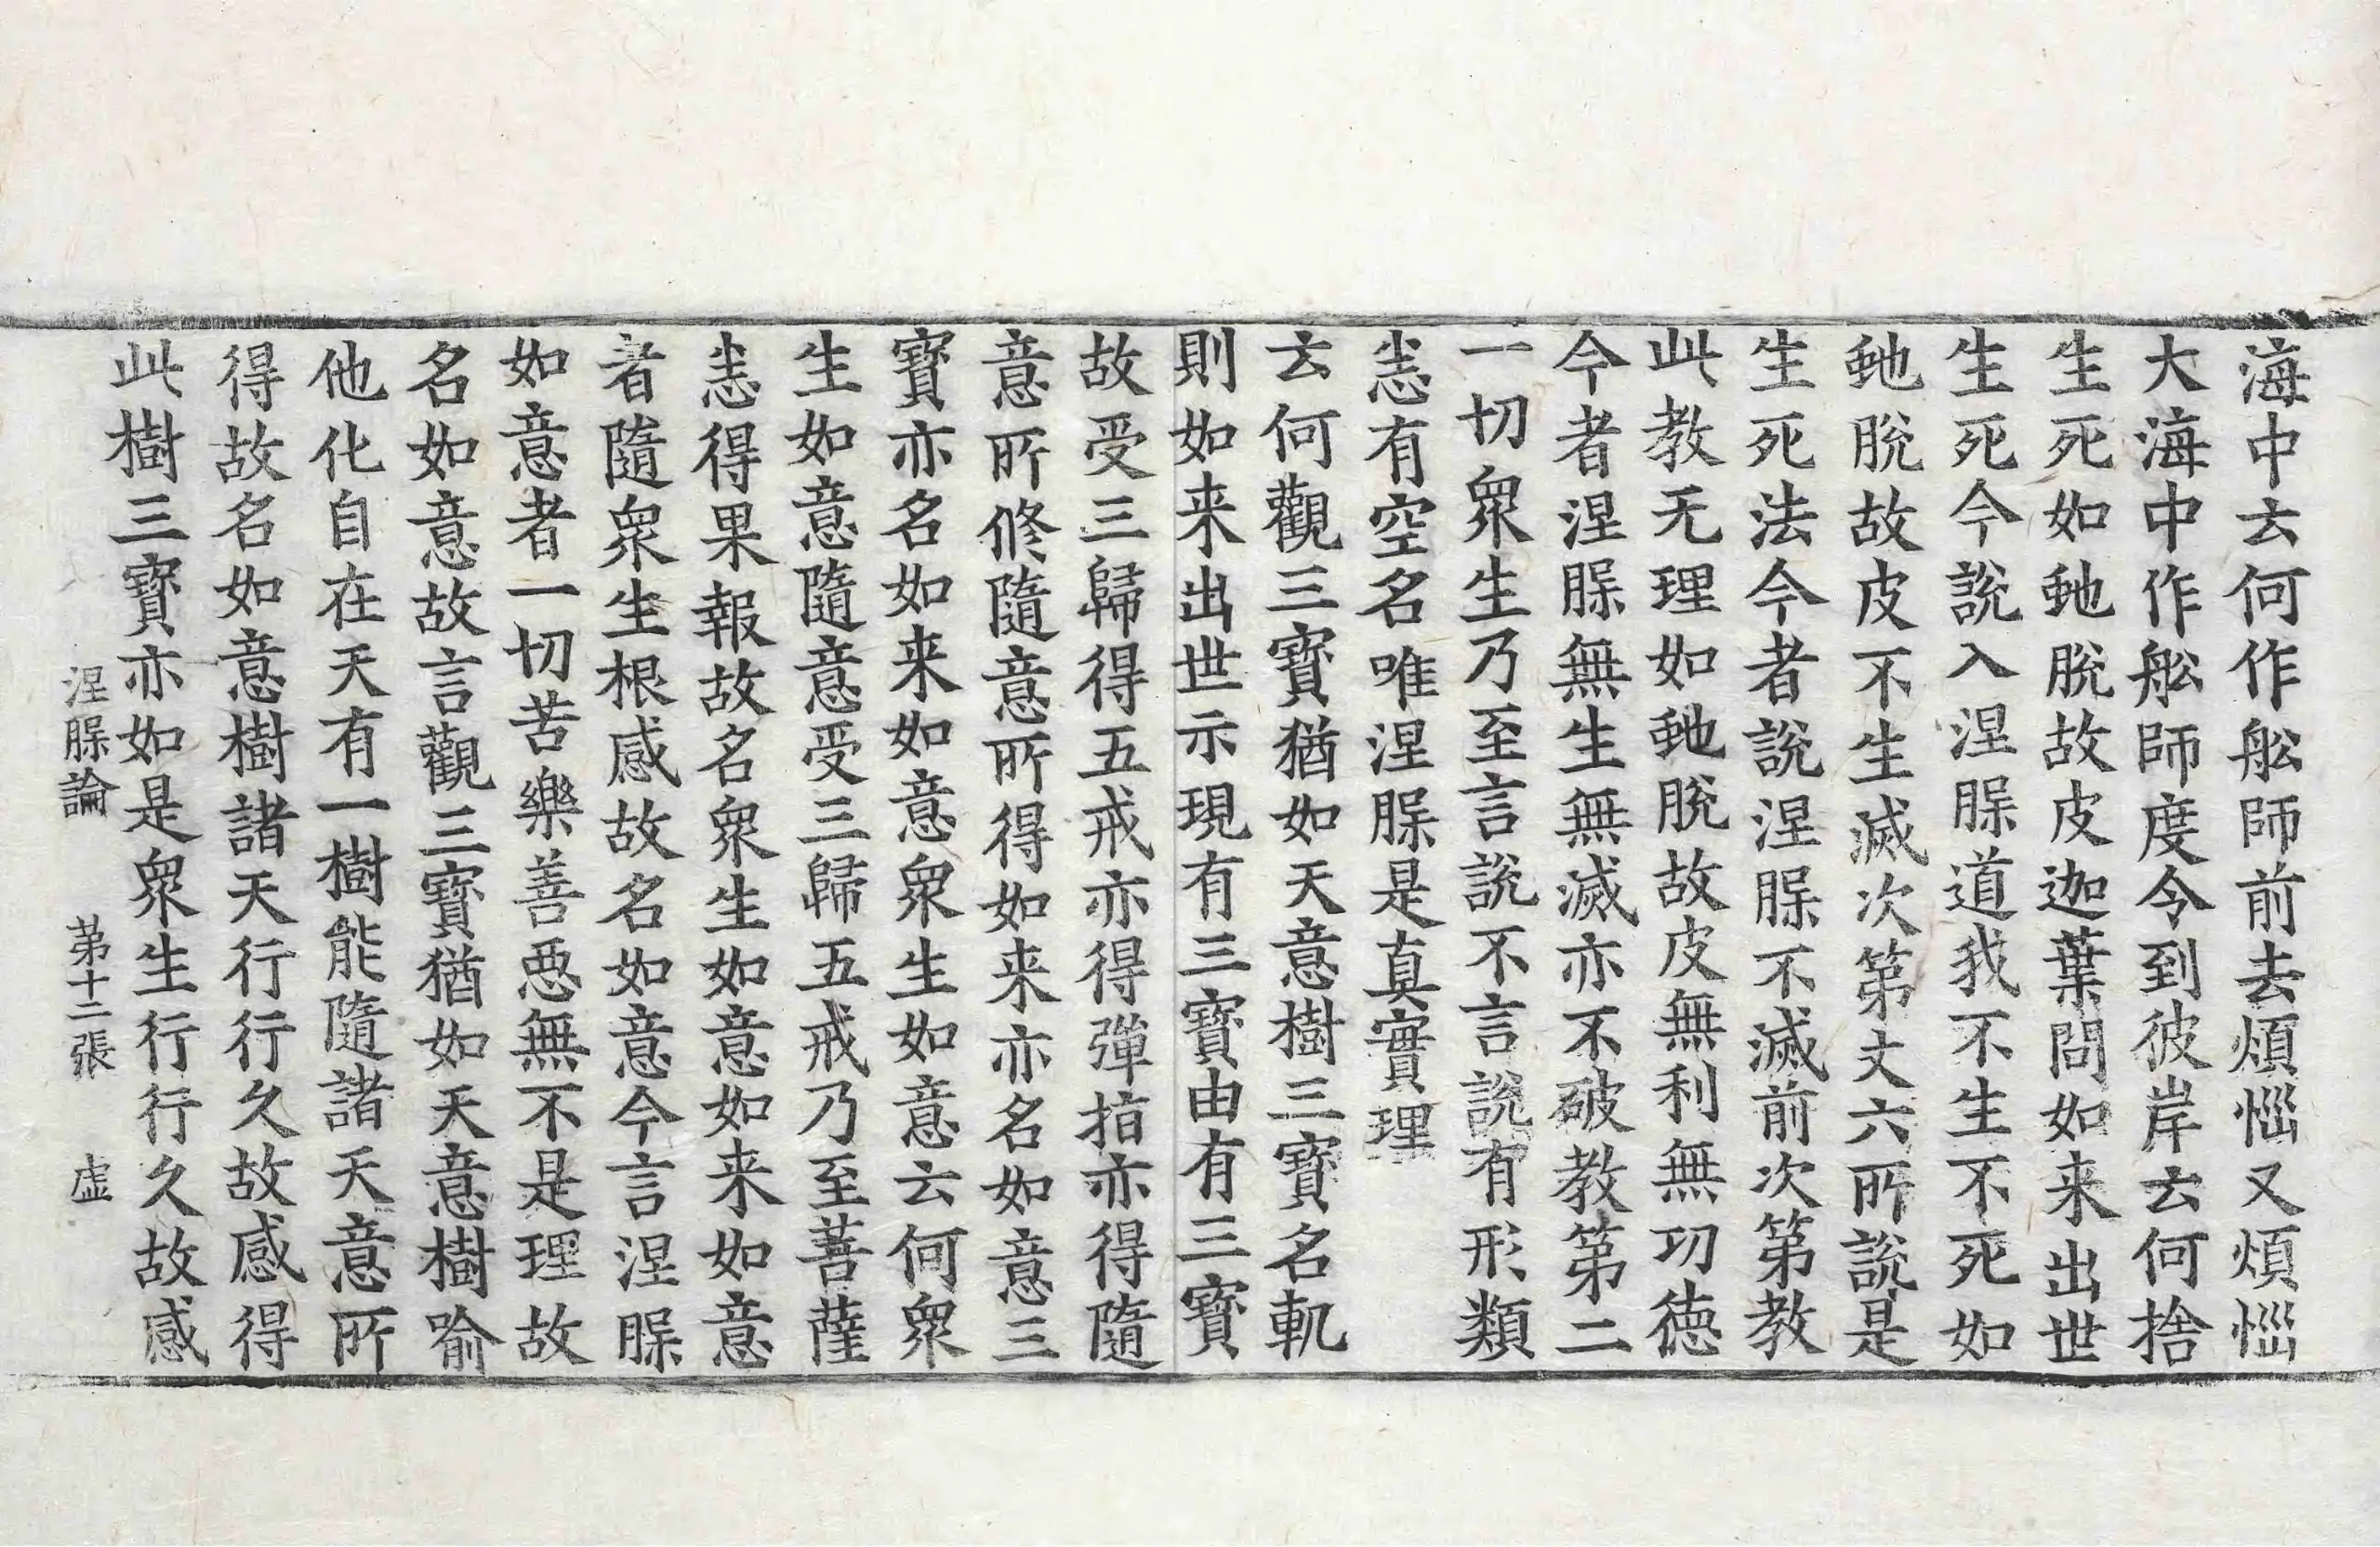 海中云何作舩師前去煩惱又煩惱
大海中作舩師度令到彼岸云何捨
生死如虵脫故皮迦葉問如来出世
生死今說入涅脲道我不生不死如
虵脫故皮不生滅次第丈六所說是
生死法今者說涅脲不滅前次第教
此教无理如虵脫故皮無利無功德
今者涅脲無生無滅亦不破教第二
一切衆生乃至言說不言說有形類
恚有空名唯涅脲是真實理
云何觀三寶猶如天意樹三寶名軌
則如来出世示現有三寶由有三寶
故受三歸得五戒亦得彈指亦得隨
意所修隨意所得如来亦名如意三
寶亦名如来如意衆生如意云何衆
生如意隨意受三歸五戒乃至菩薩
恚得果報故名衆生如意如来如意
者隨衆生根感故名如意今言涅脲
如意者一切苦樂善惡無不是理故
名如意故言觀三寶猶如天意樹喻
他化自在天有一樹能隨諸天意所
得故名如意樹諸天行行久故感得
此樹三寶亦如是衆生行行久故感
涅脲論 第十二張 虛